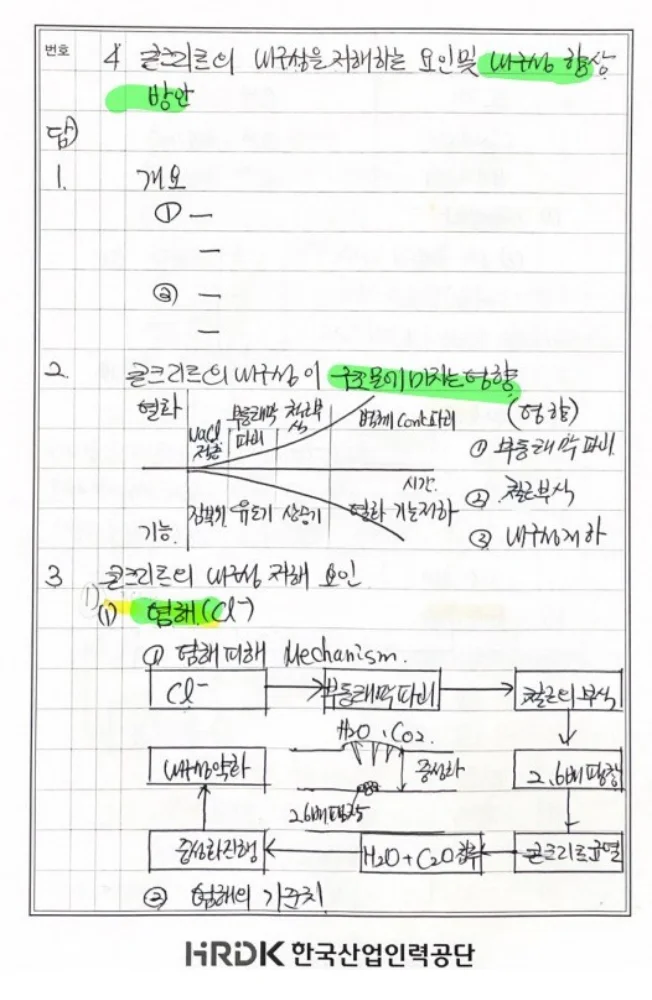 번호 4 콘크리트의 내구성을 저해하는 요인 및 내구성 향상
방안
답)
1. 개요
① —
—
② —
—
2. 콘크리트의 내구성이 구조물에 미치는 영향
열화 NaCl 부동태막 파괴 철근부식 Conc파괴 (영향)
① 부동태막 파괴
시간
② 철근부식
기능 잠복기 유도기 상승기 열화 기능저하
③ 내구성저하
3 콘크리트의 내구성 저해 요인
1)
(1) 염해 (Cl⁻)
① 염해피해 Mechanism.
Cl⁻ 부동태막파괴 철근의 부식
H2O, CO2.
내구성약화 중성화 2.6배팽창
2.6배팽창
중성화진행 H2O+C2O침투 콘크리트균열
② 염해의 기준치
HRDK 한국산업인력공단